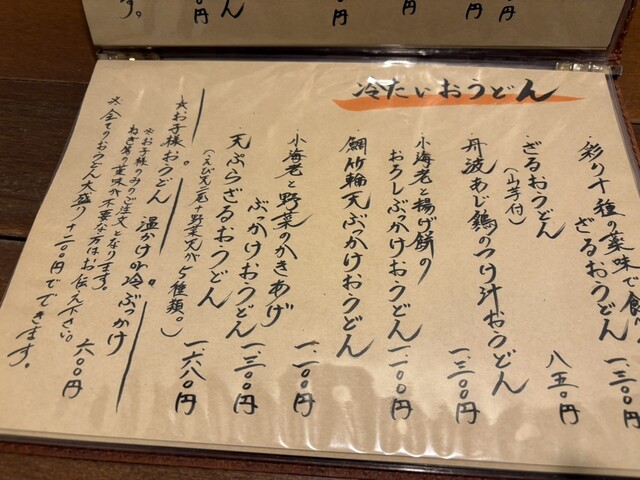 冷たいおうどん
・彩り十種の薬味で食べ
ざるおうどん 一、三〇〇円
・ざるおうどん
(山芋付) 八五〇円
・丹波あじ鶏のつけ汁おうどん 一、三〇〇円
・小海老と揚げ餅の
おろしぶっかけおうどん 一、一〇〇円
・鯛竹輪天ぶっかけおうどん 一、一〇〇円
・小海老と野菜のかきあげ
ぶっかけおうどん 一、三〇〇円
・天ぷらざるおうどん
(えび天二尾と野菜天が5種類。) 一、六八〇円
☆お子様おうどん。温かけor冷ぶっかけ 六〇〇円
※お子様のみのご注文となります。
ねぎ等の薬味が不要な方はお伝え下さい。
※全てのおうどん大盛り+二〇〇円でできます。
す。
円
ん
円
円
円
円